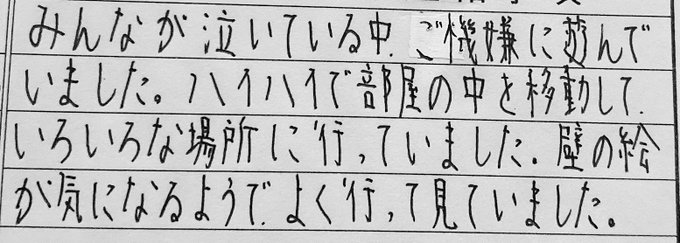 みんなが泣いている中、ご機嫌に遊んで
いました。ハイハイで部屋の中を移動して、
いろいろな場所に行っていました。壁の絵
が気になるようで、よく行って見ていました。